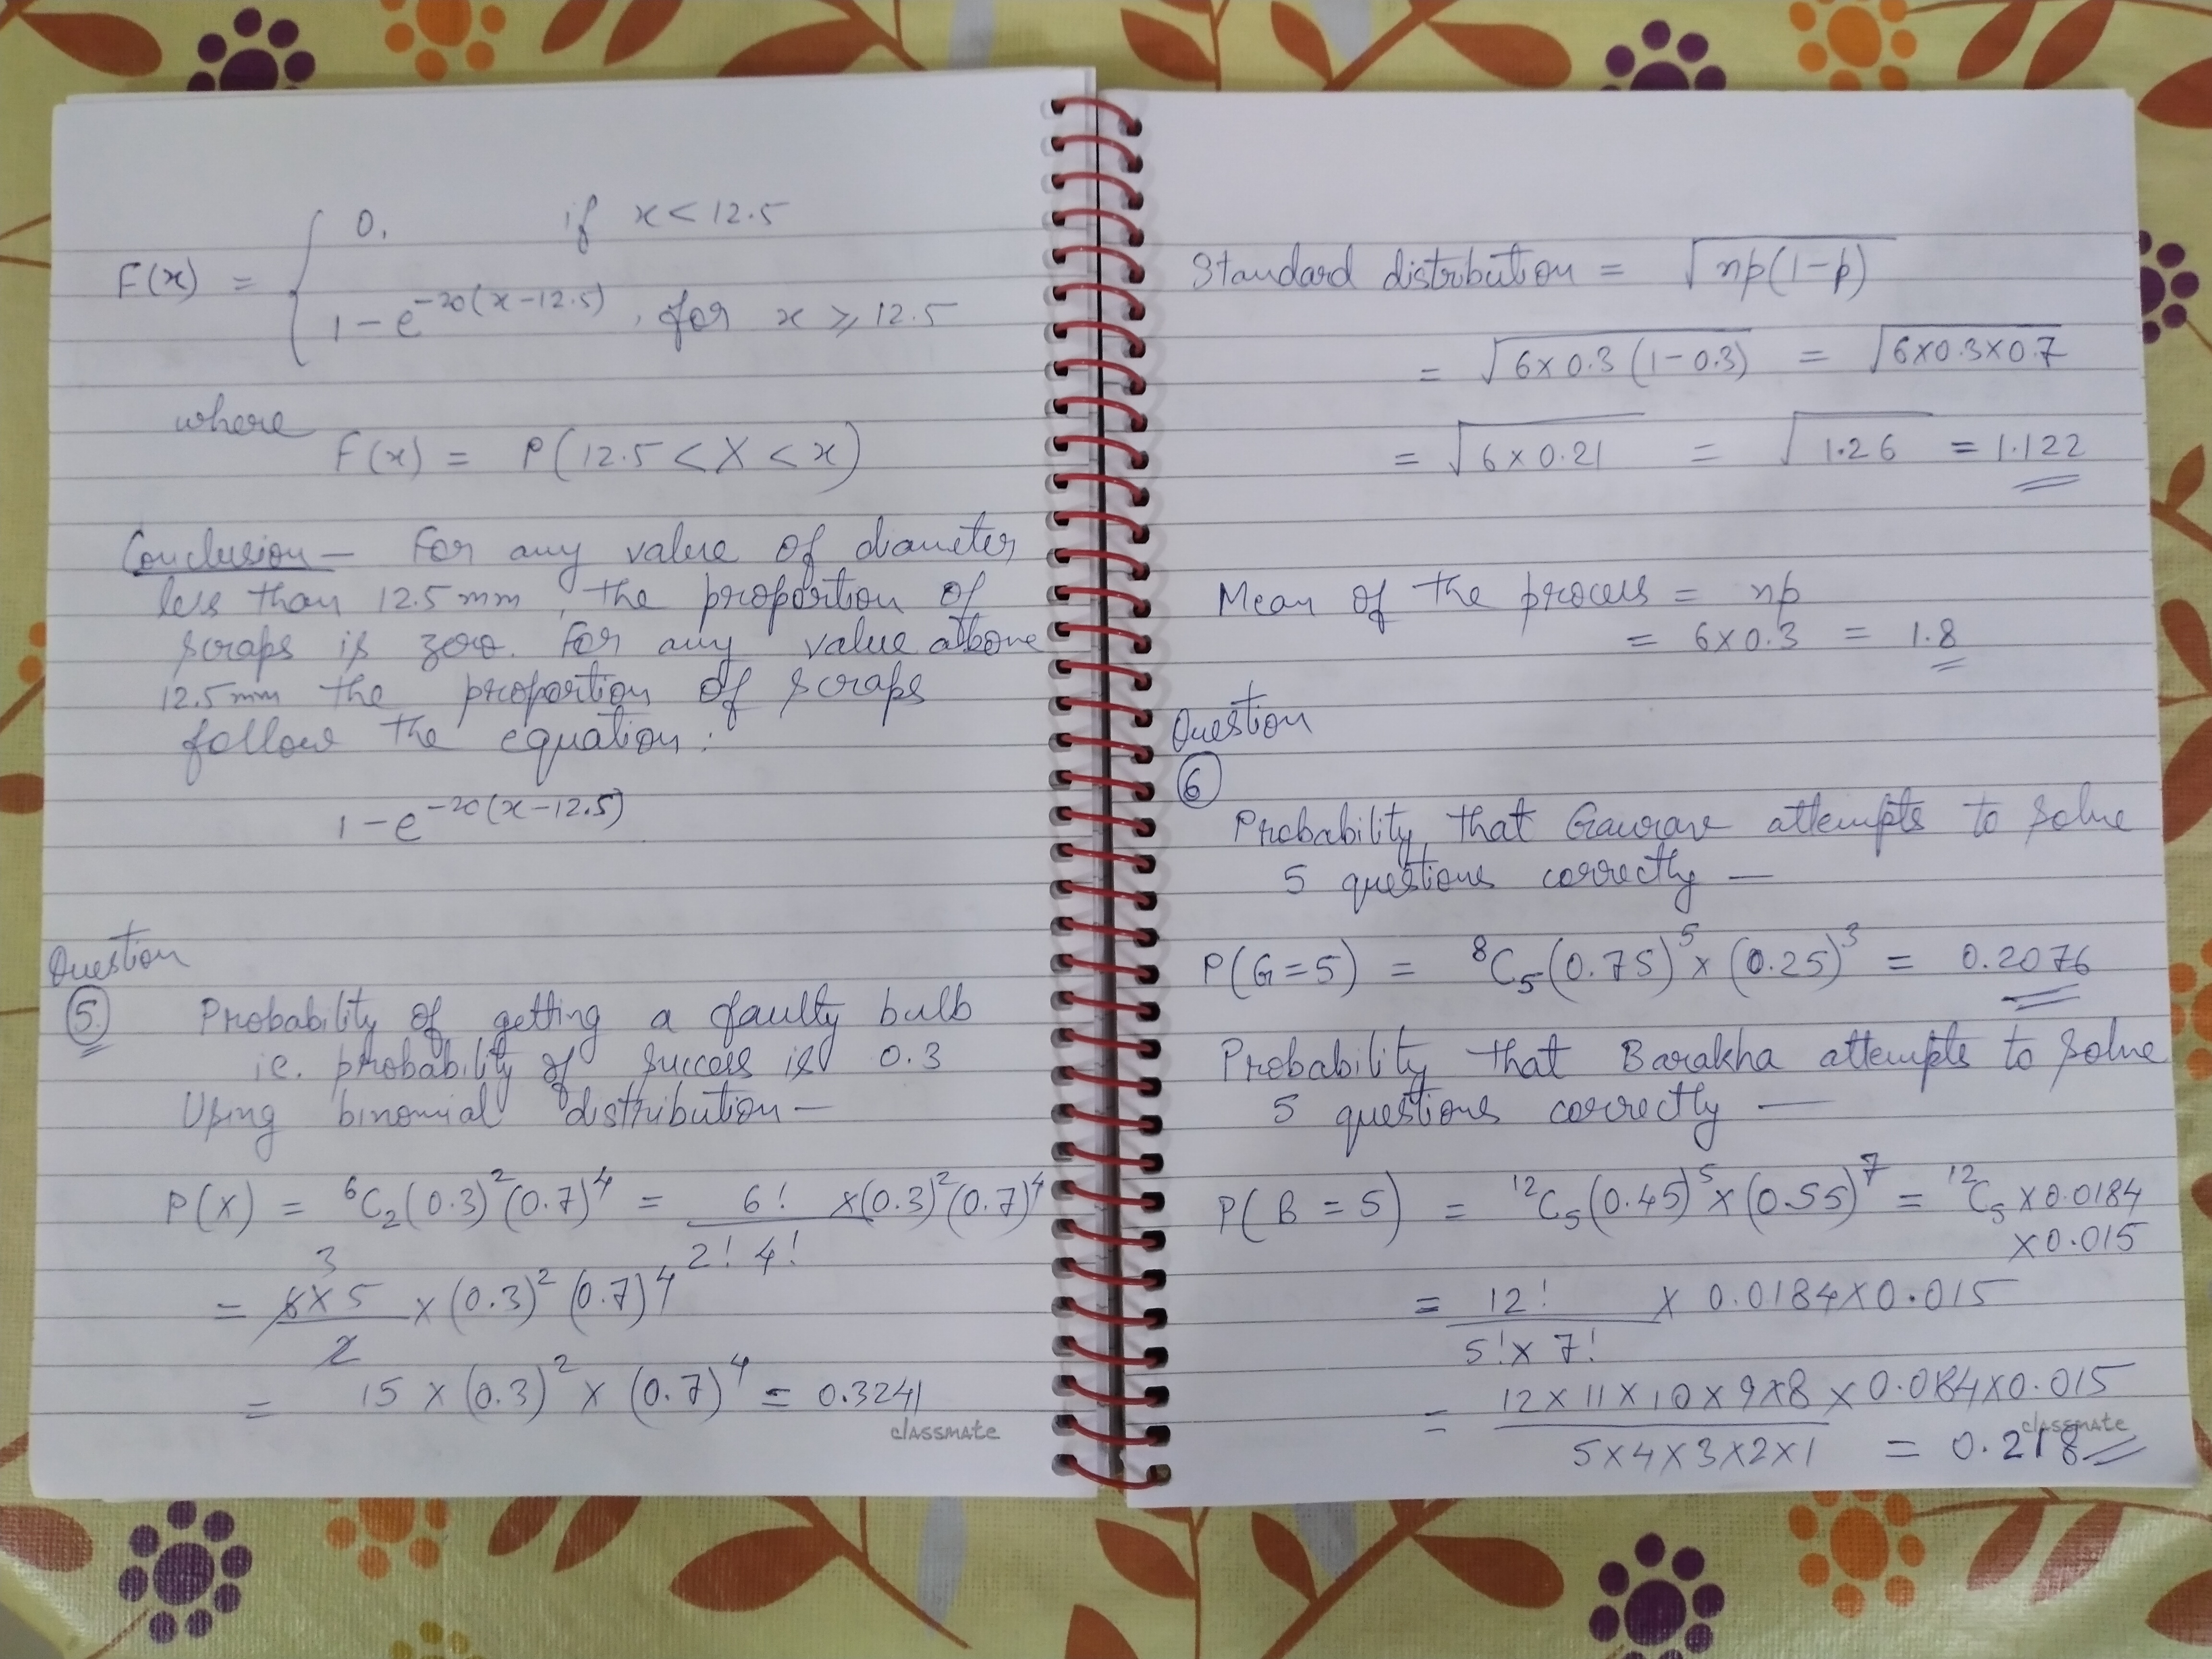 F(x) = { 0, if x < 12.5
1 - e^-20(x-12.5), for x ≥ 12.5
where F(x) = P(12.5 < X < x)
Conclusion - For any value of diameter
less than 12.5mm, the proportion of
scraps is zero. For any value above
12.5mm the proportion of scraps
follows the equation:
1 - e^-20(x-12.5)
Question
5. Probability of getting a faulty bulb
i.e. probability of success is 0.3
Using binomial distribution -
P(X) = ⁶C₂(0.3)²(0.7)⁴ = 6! x(0.3)²(0.7)⁴
2! 4!
= 6x5 x (0.3)²(0.7)⁴
3
2
= 15 x (0.3)² x (0.7)⁴ = 0.3241
classmate
Standard distribution = √np(1-p)
= √6x0.3(1-0.3) = √6x0.3x0.7
= √6x0.21 = √1.26 = 1.122
Mean of the process = np
= 6x0.3 = 1.8
Question
6 Probability that Gaurav attempts to solve
5 questions correctly -
P(G=5) = ⁸C₅(0.75)⁵x(0.25)³ = 0.2076
Probability that Barakha attempts to solve
5 questions correctly -
P(B=5) = ¹²C₅(0.45)⁵x(0.55)⁷ = ¹²C₅x0.0184
x0.015
= 12! x 0.0184x0.015
5!x7!
= 12x11x10x9x8 x0.0184x0.015
5x4x3x2x1 = 0.218
classmate